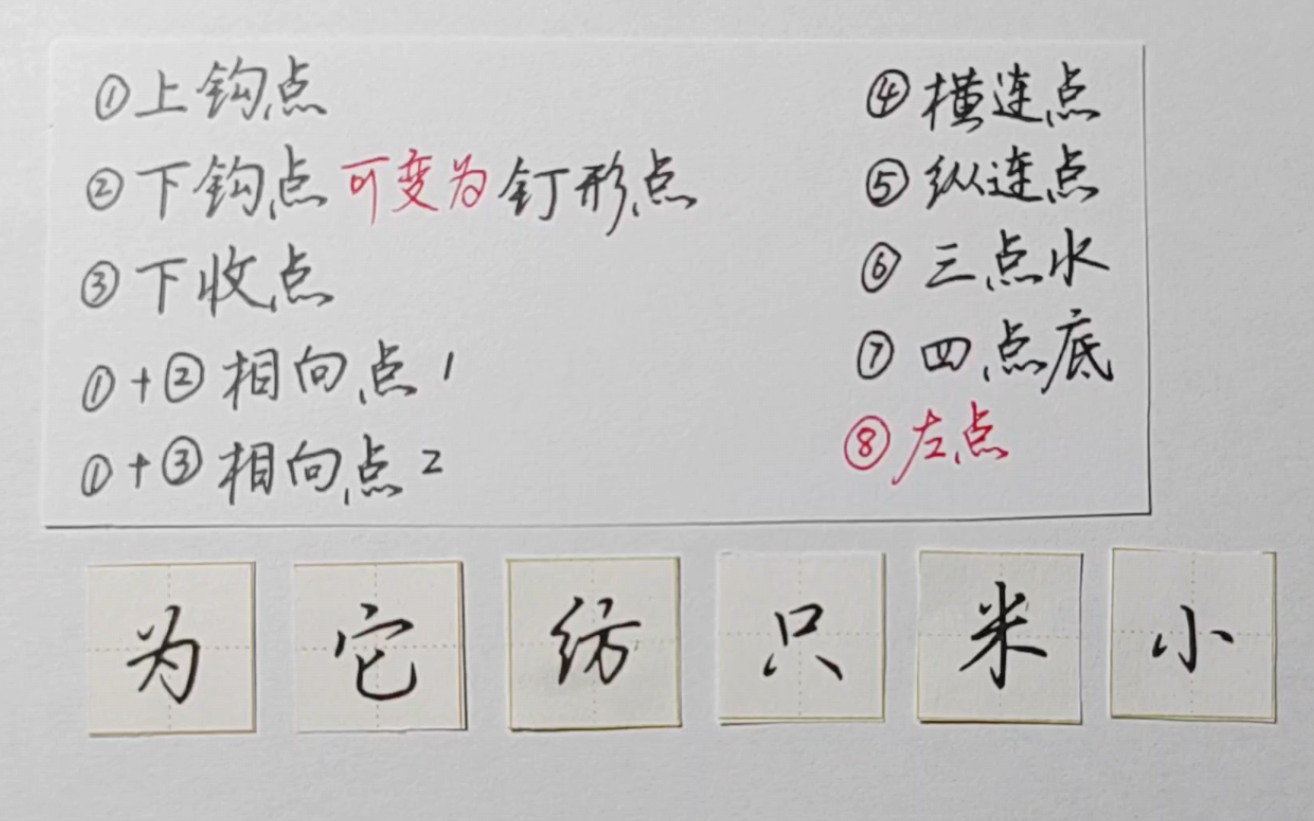 ①上钩点
②下钩点可变为钉形点
③下收点
①+②相向点1
①+③相向点2
④横连点
⑤纵连点
⑥三点水
⑦四点底
⑧左点
为它纺只米小